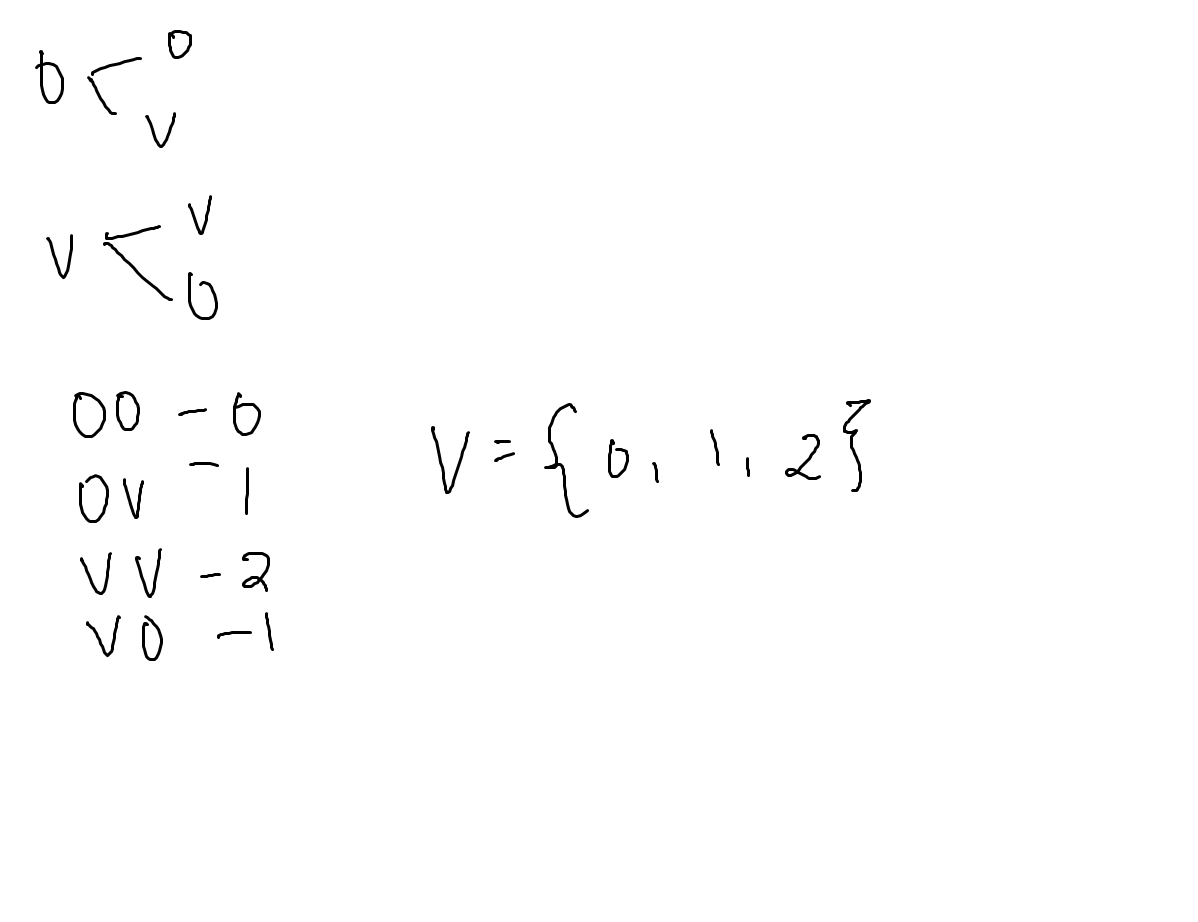 O < O
V
V < V
O
OO - 0
OV - 1
VV - 2
VO - 1
V = {0, 1, 2}